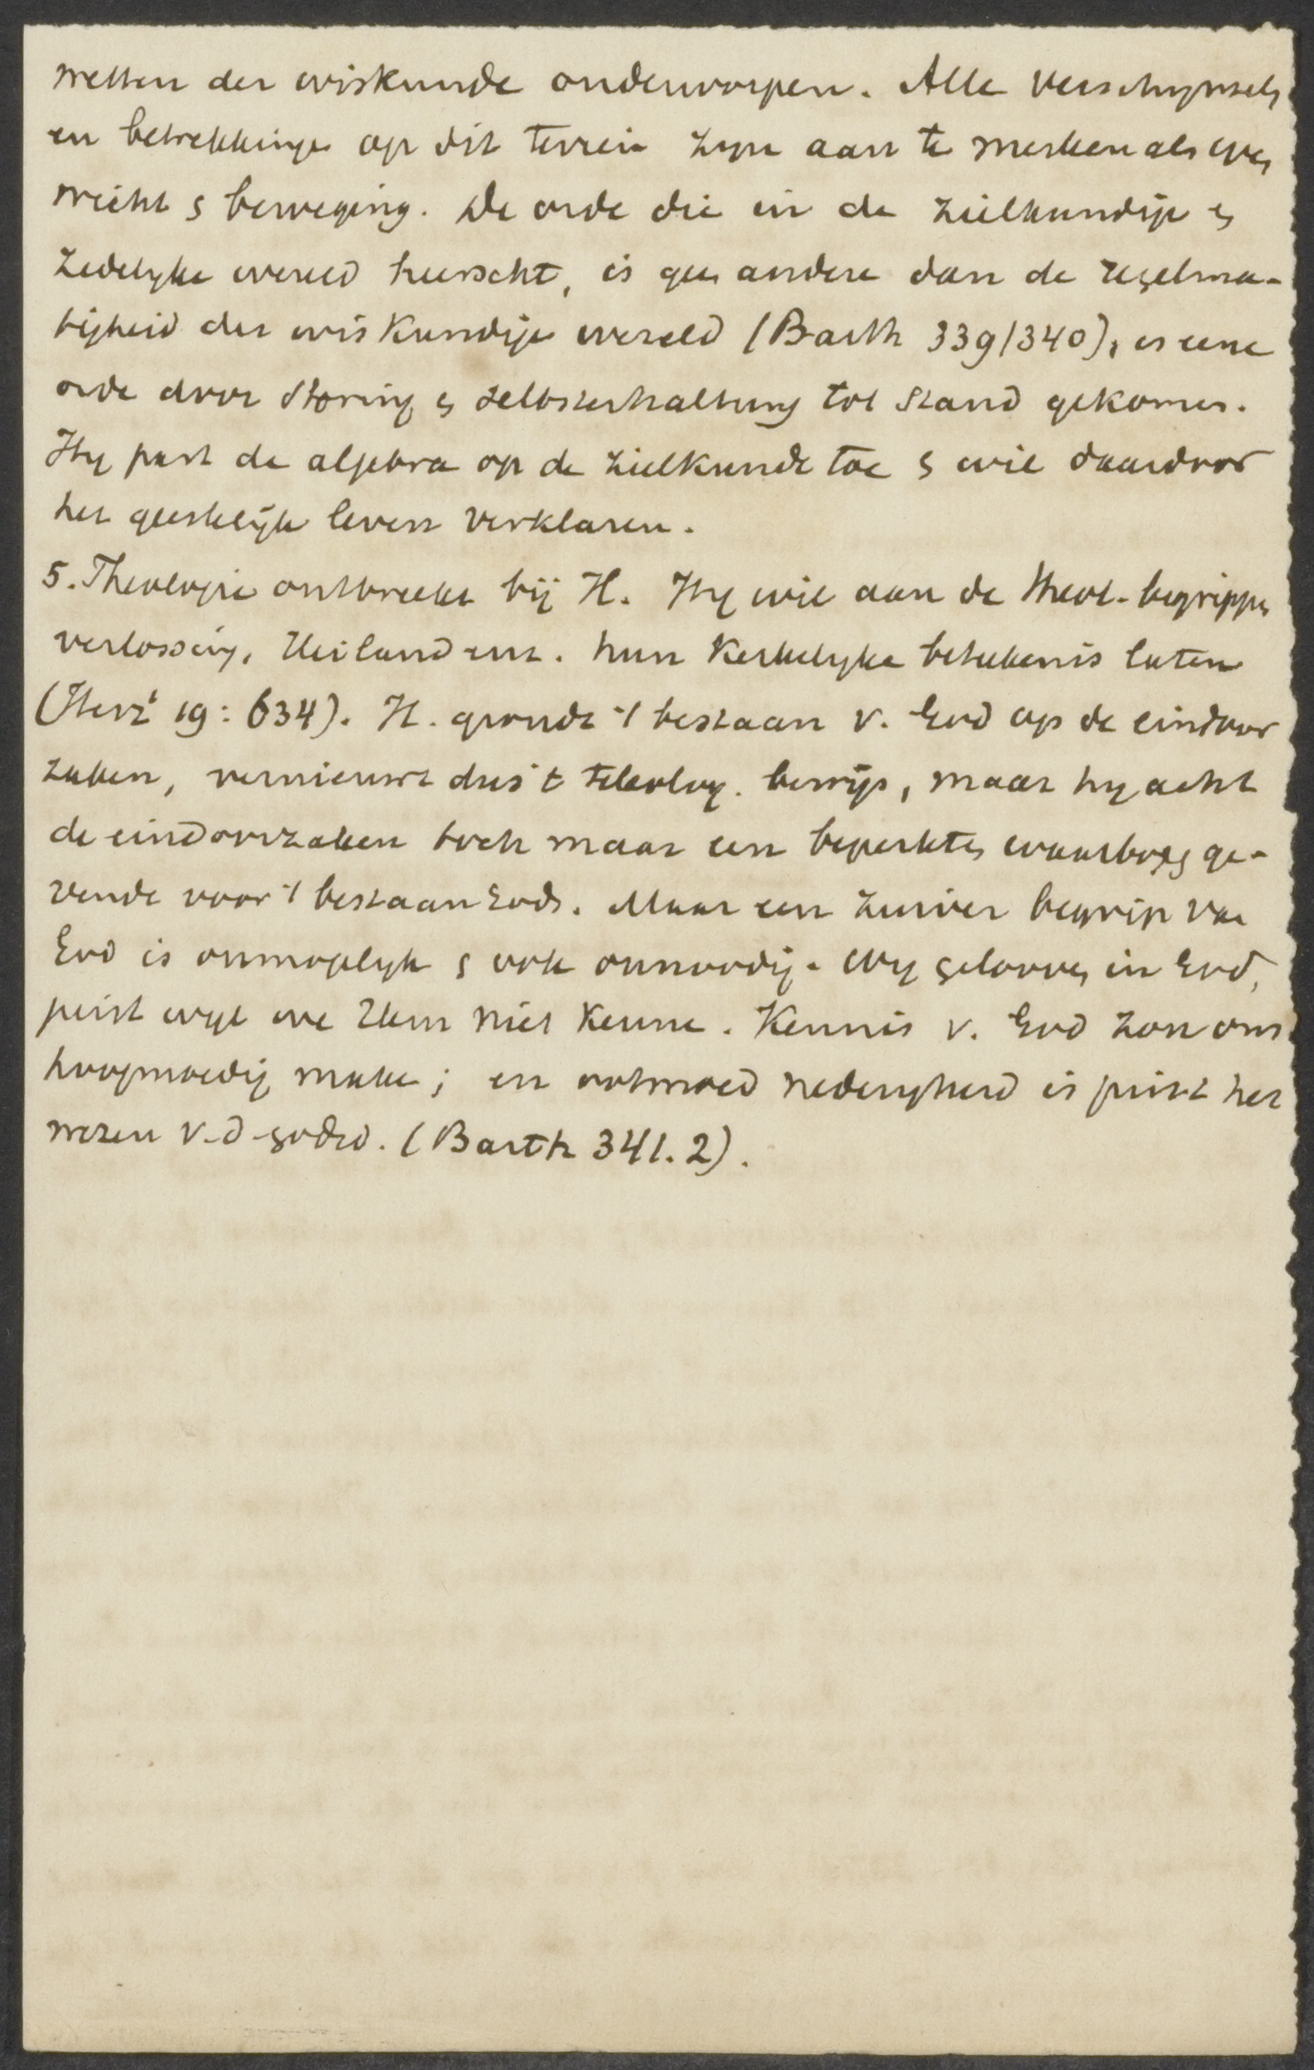 wetten der wiskunde onderworpen. Alle verschynsels
en betrekkinge op dit terrein zyn aan te merken als even
wicht & beweging. De orde die in de zielkundige en
zedelyke wereld heerscht, is geen andere dan de regelma-
tigheid der wiskundige wereld (Barth 339/340), is eene
orde door storing en selbsterhaltung tot stand gekomen.
Hy past de algebra op de zielkunde toe & wil daardoor
het geestelijk leven verklaren.
5. Theologie ontbreekt bij H. Hy wil aan de theol. begrippen
verlossing, Heiland enz. hun kerkelyke beteekenis laten
(Herz² 19: 634). H. grondt 't bestaan v. God op de eindoor
zaken, vernieuwt dus 't teleolog. bewijs, maar hy acht
de eindoorzaken toch maar een beperkten waarborg ge-
vende voor 't bestaan Gods. Maar een zuiver begrip van
God is onmogelyk & ook onnoodig. Wy gelooven in God,
juist wyl we Hem niet kenne. Kennis v. God zou ons
hoogmoedig make; en ootmoed nederigheid is juist het
wezen v. d. godsd. (Barth 341.2).